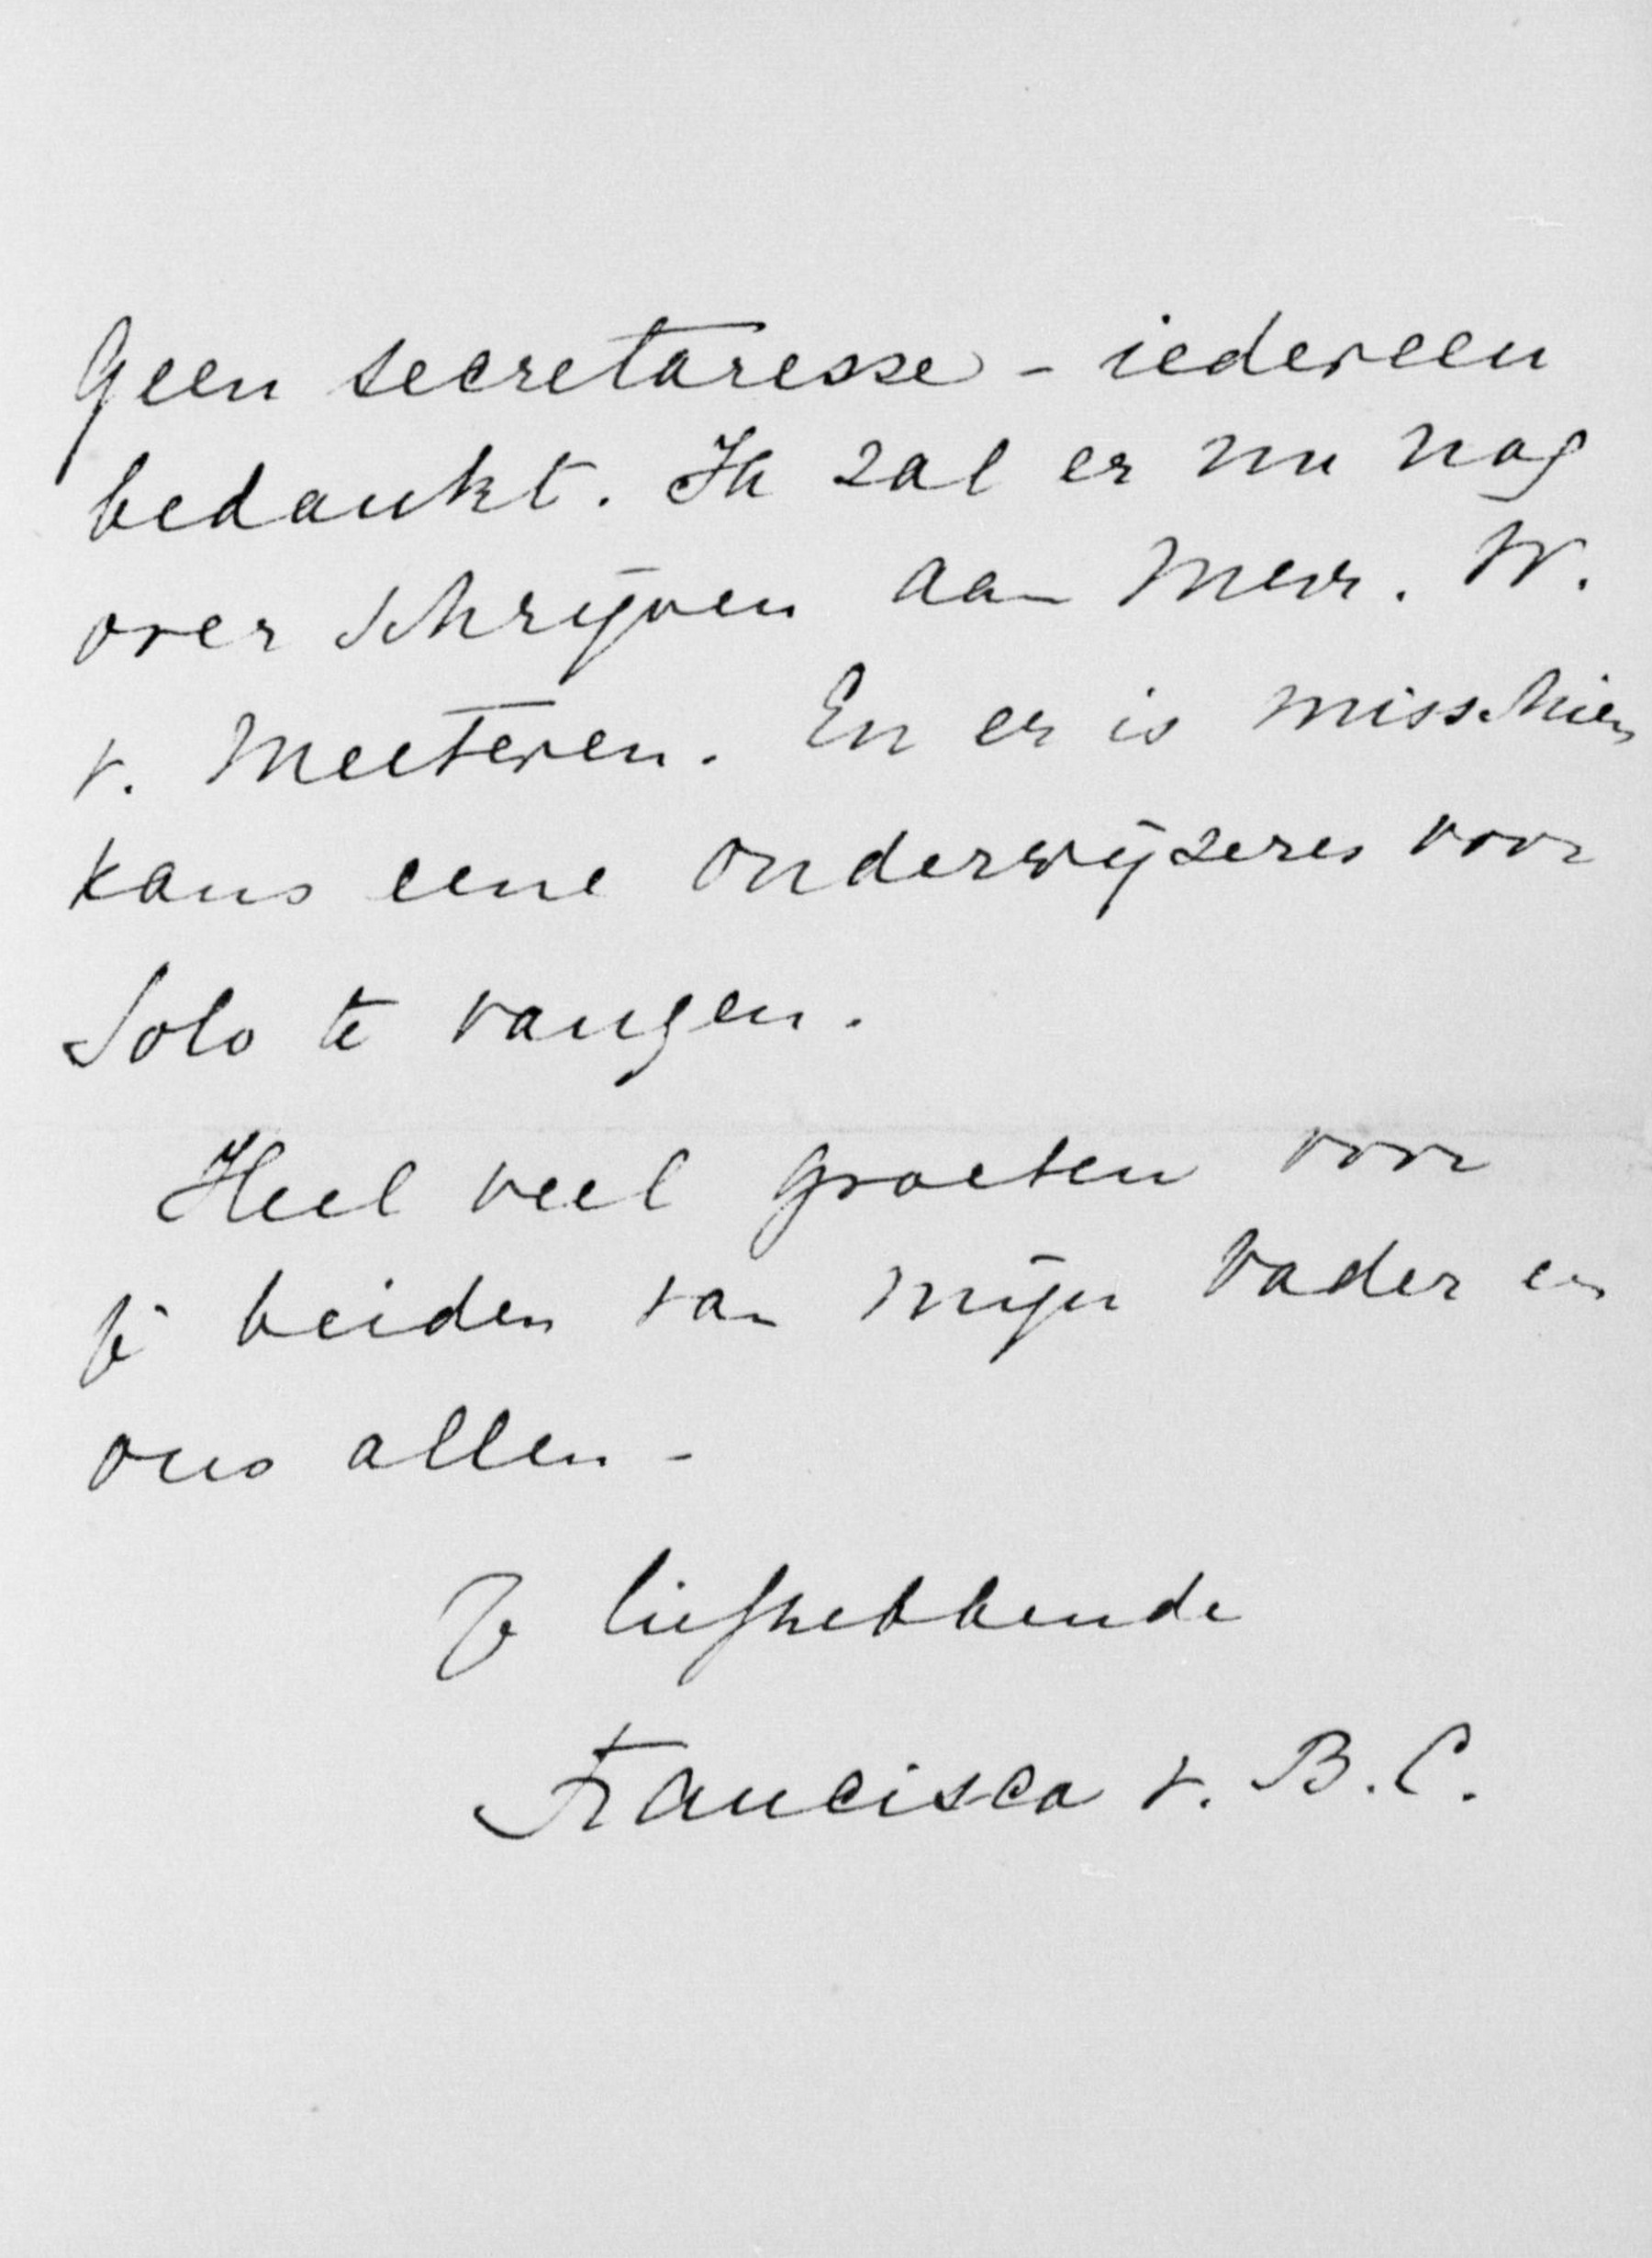 Geen secretaresse - iedereen
bedankt. Ik zal er nu nog
over schrijven aan Mevr. W.
v. Meeteren. En er is misschien
kans eene onderwijzeres voor
Solo te vangen.
Heel veel groeten voor
je beiden van mijn vader en
ons allen -
Je liefhebbende
Francisca v. B. C.